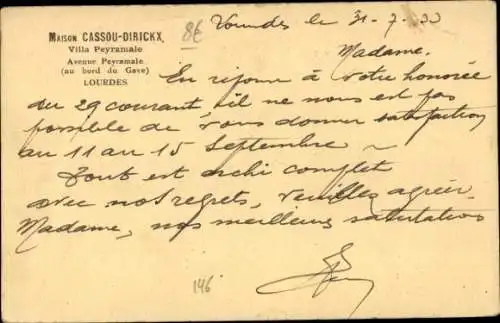 Maison CASSOU-DIRICKX
Villa Peyramale
Avenue Peyramale
(au bord du Gave)
LOURDES
8€
Lourdes le 31-7-33
Madame,
En réponse à votre honorée
du 29 courant, il ne nous est pas
possible de vous donner satisfaction
du 11 au 15 Septembre ~
Tout est archi complet
avec nos regrets, veuillez agréer
Madame, nos meilleures salutations
146